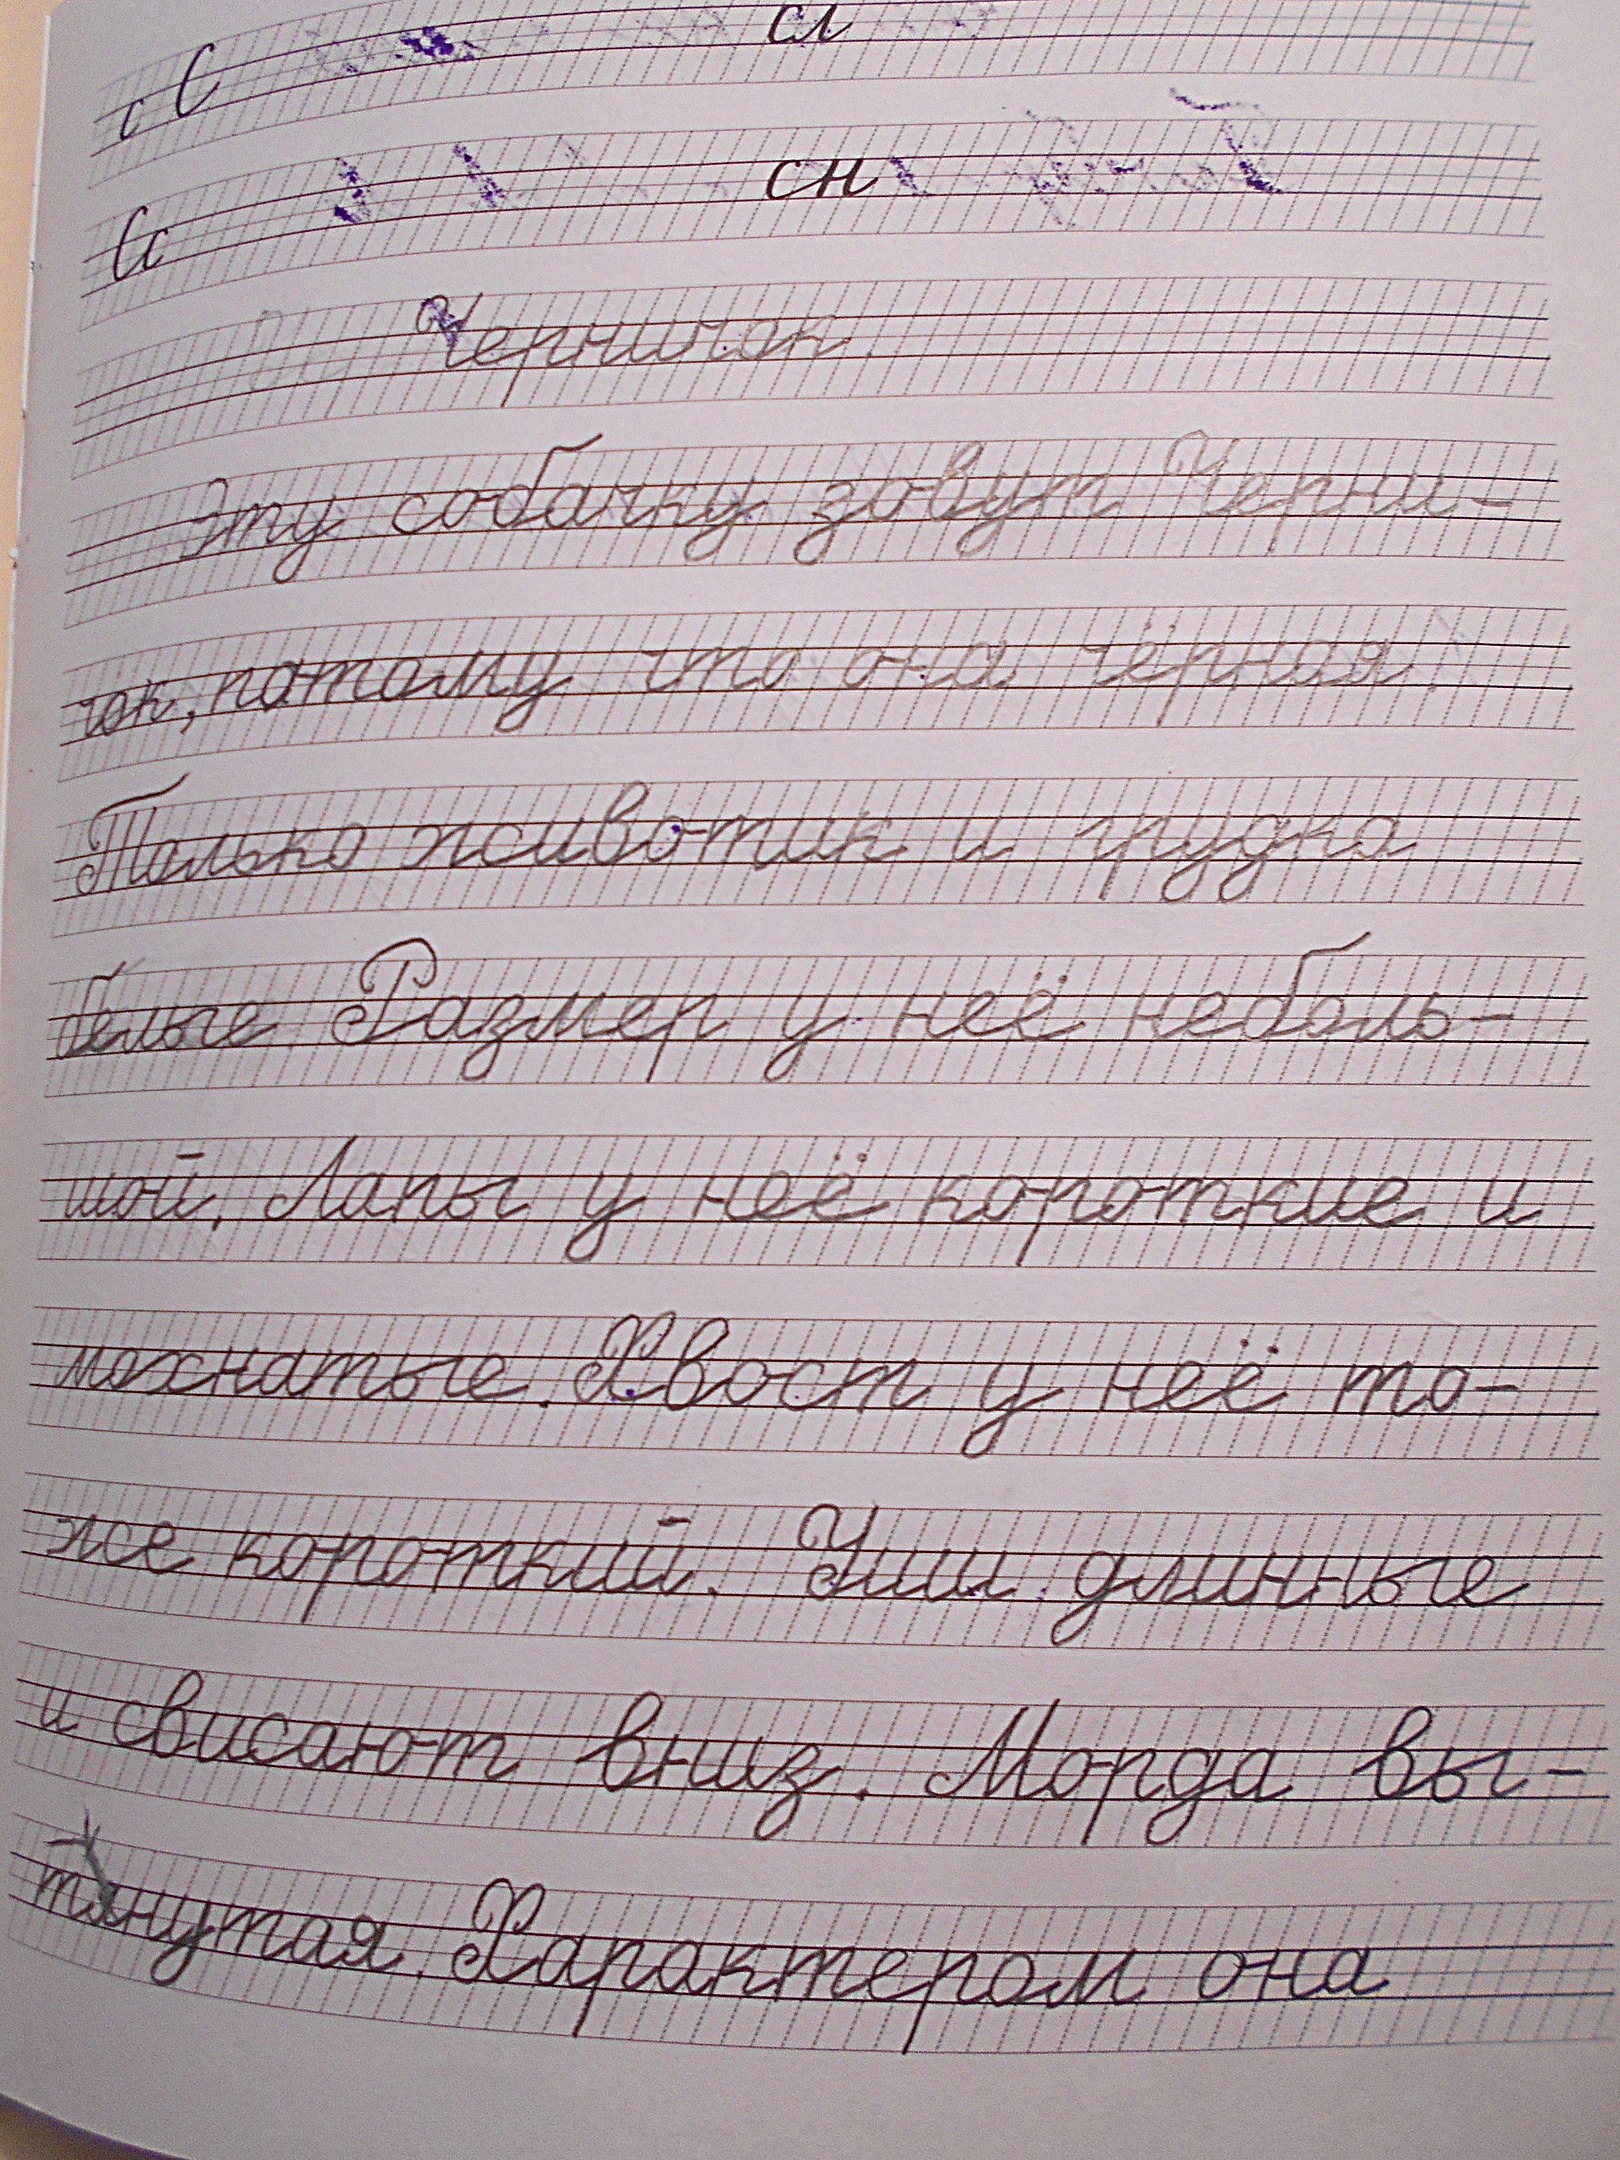 с С сл
Cc сн
Черничок.
Эту собачку зовут Черни-
чок, потому что она чёрная.
Только животик и грудка
белые Размер у неё неболь-
шой. Лапы у неё короткие и
мохнатые. Хвост у неё то-
же короткий. Уши длинные
и свисают вниз. Морда вы-
тянутая. Характером она